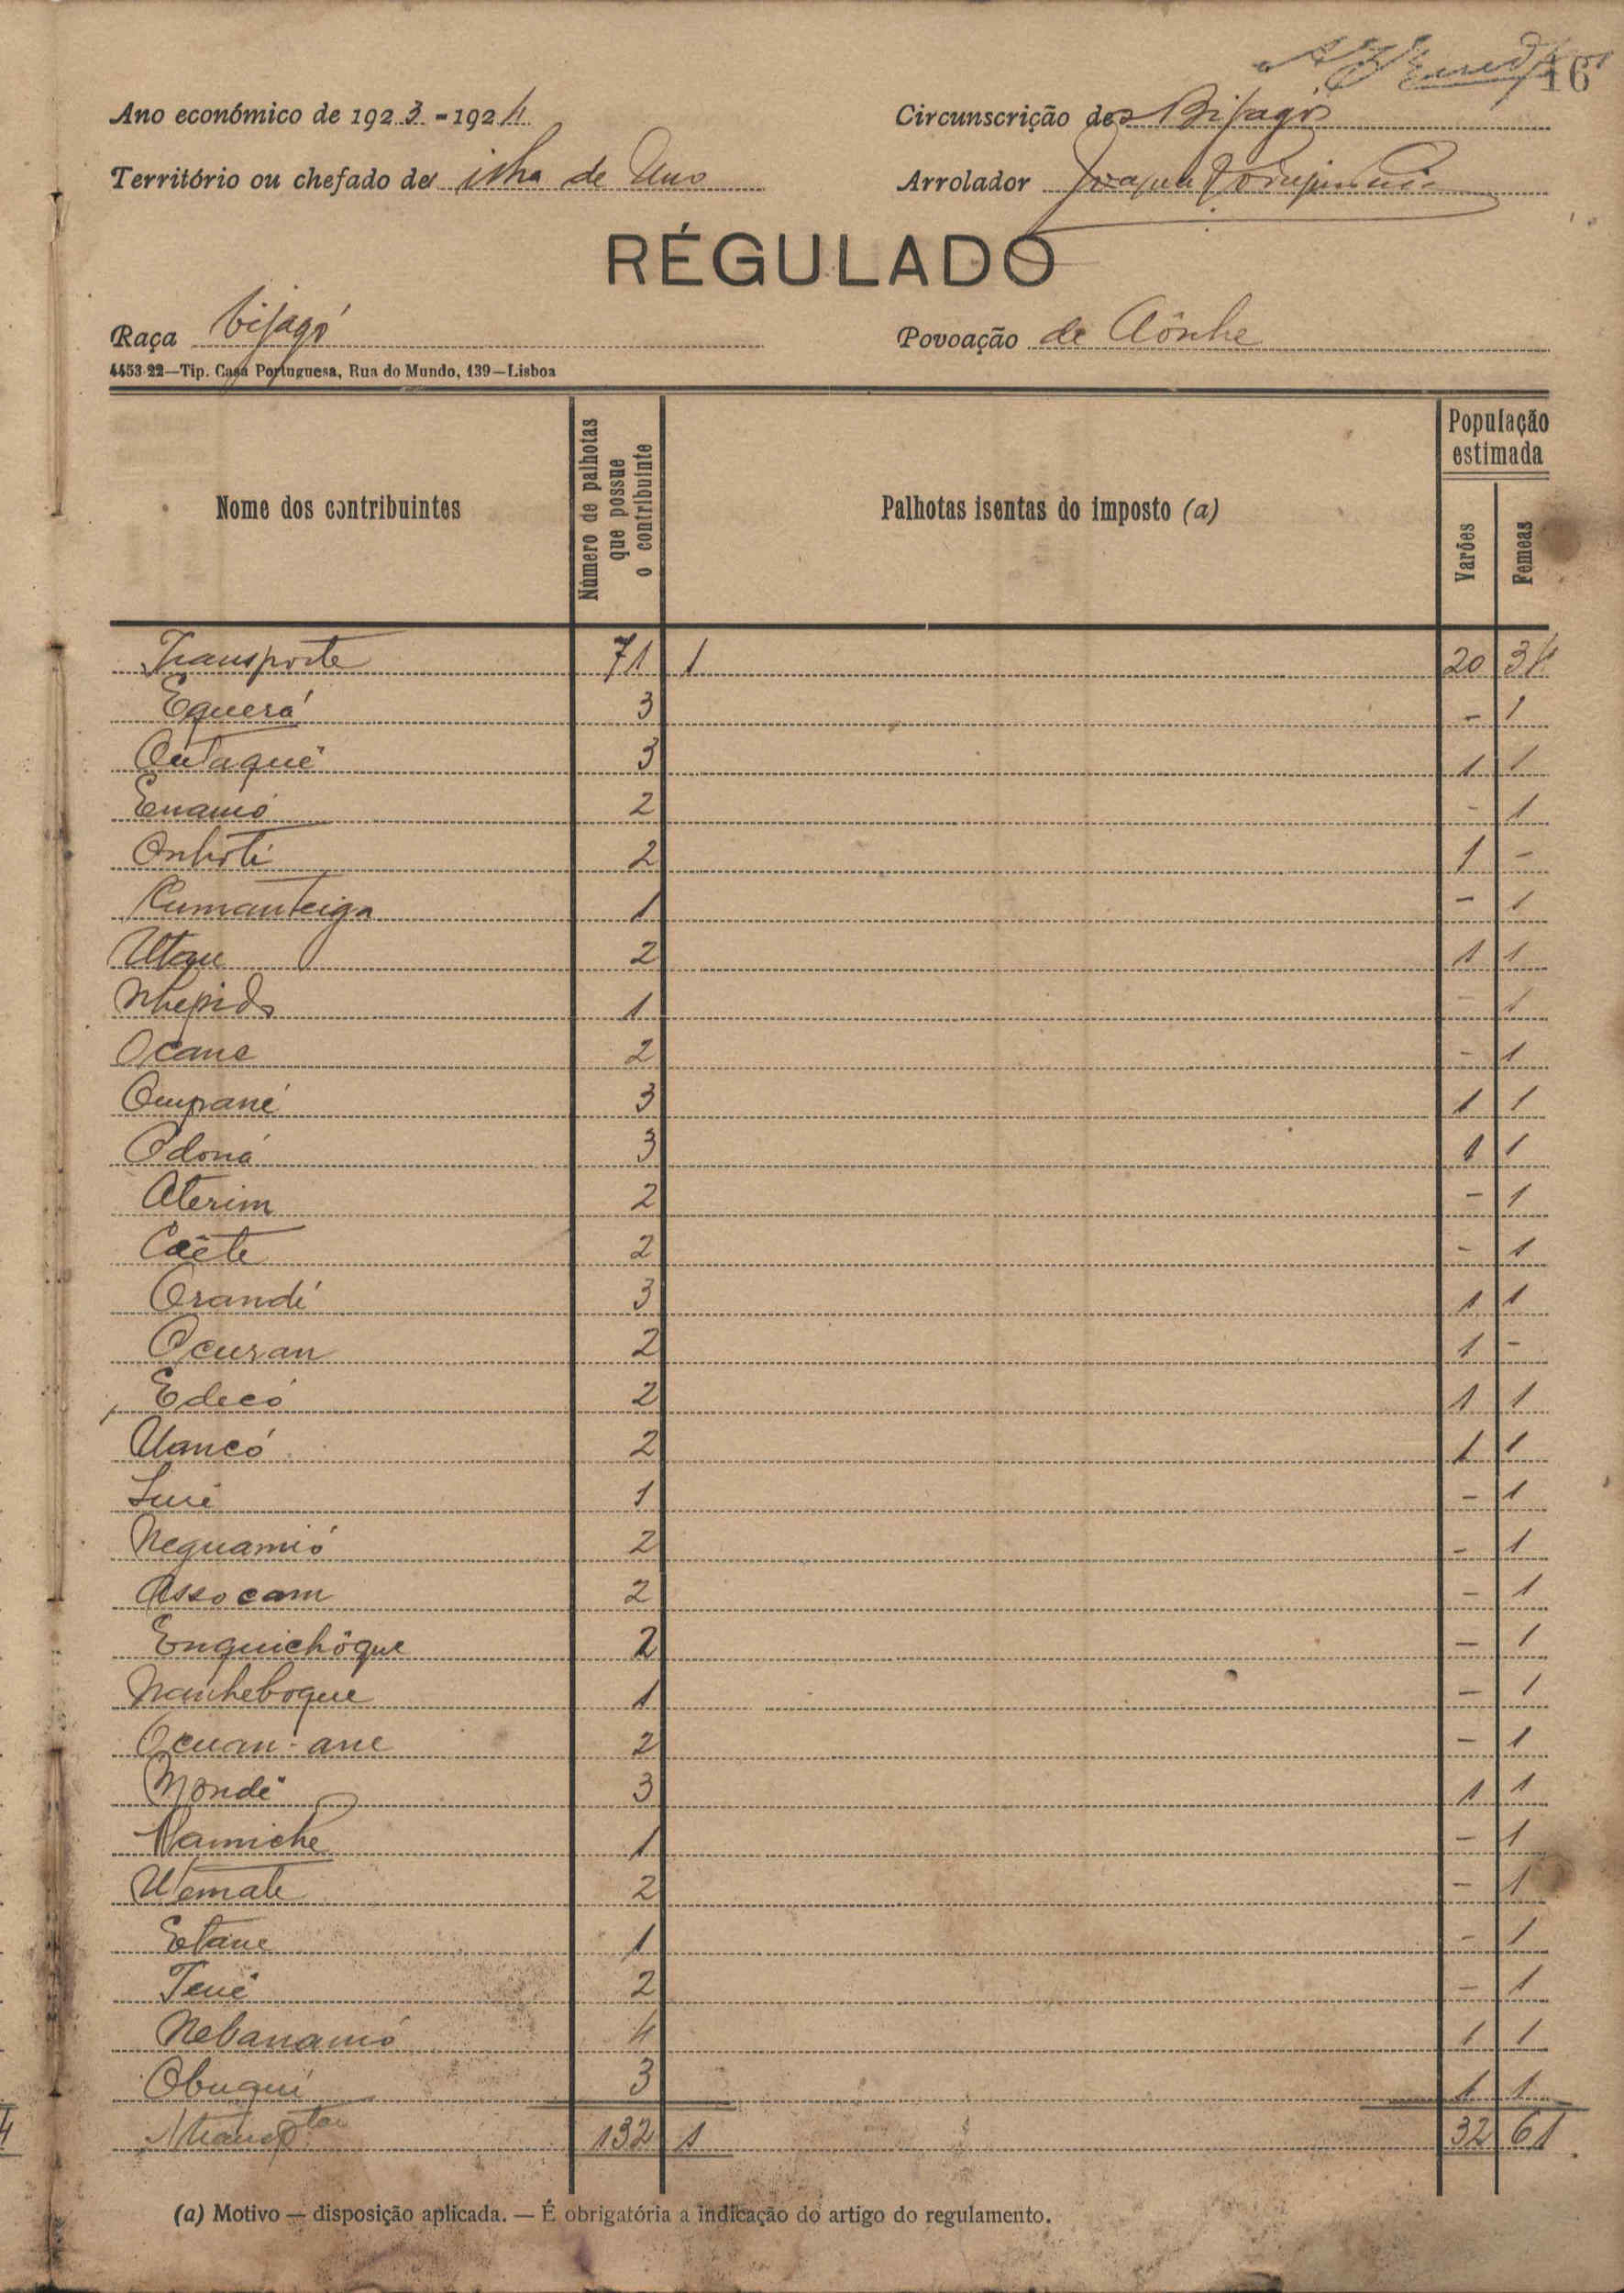 16
Ano económico de 1923-1924 Circunscrição dos Bijagós
Território ou chefado de ilha de Uno Arrolador
RÉGULADO
Raça bijagó Povoação de Aônhe
4453-22—Tip. Casa Portuguesa, Rua do Mundo, 139—Lisboa
Nome dos contribuintes Número de palhotas que possue o contribuinte Palhotas isentas do imposto (a) População estimada Varões Femeas
Transporte 71 1 20 34
Equerá 3 - 1
Cutaquê 3 1 1
Enamó 2 - 1
Onhoti 2 1 -
Cumanteiga 1 - 1
Utequ 2 1 1
Nhepido 1 - 1
Ocane 2 - 1
Ompané 3 1 1
Odoná 3 1 1
Aterim 2 - 1
Caête 2 - 1
Orandé 3 1 1
Ocuran 2 1 -
Edecó 2 1 1
Uancó 2 1 1
1 - 1
Neguamió 2 - 1
Assocam 2 - 1
Enquichôque 2 - 1
Nanheboque 1 - 1
Ocuam-ane 2 - 1
Nondê 3 1 1
Namiche 1 - 1
Uemate 2 - 1
Etane 1 - 1
Tené 2 - 1
Nebanamó 4 1 1
Obuqui 3 1 1
A transptar 132 1 32 61
(a) Motivo — disposição aplicada. — É obrigatória a indicação do artigo do regulamento.